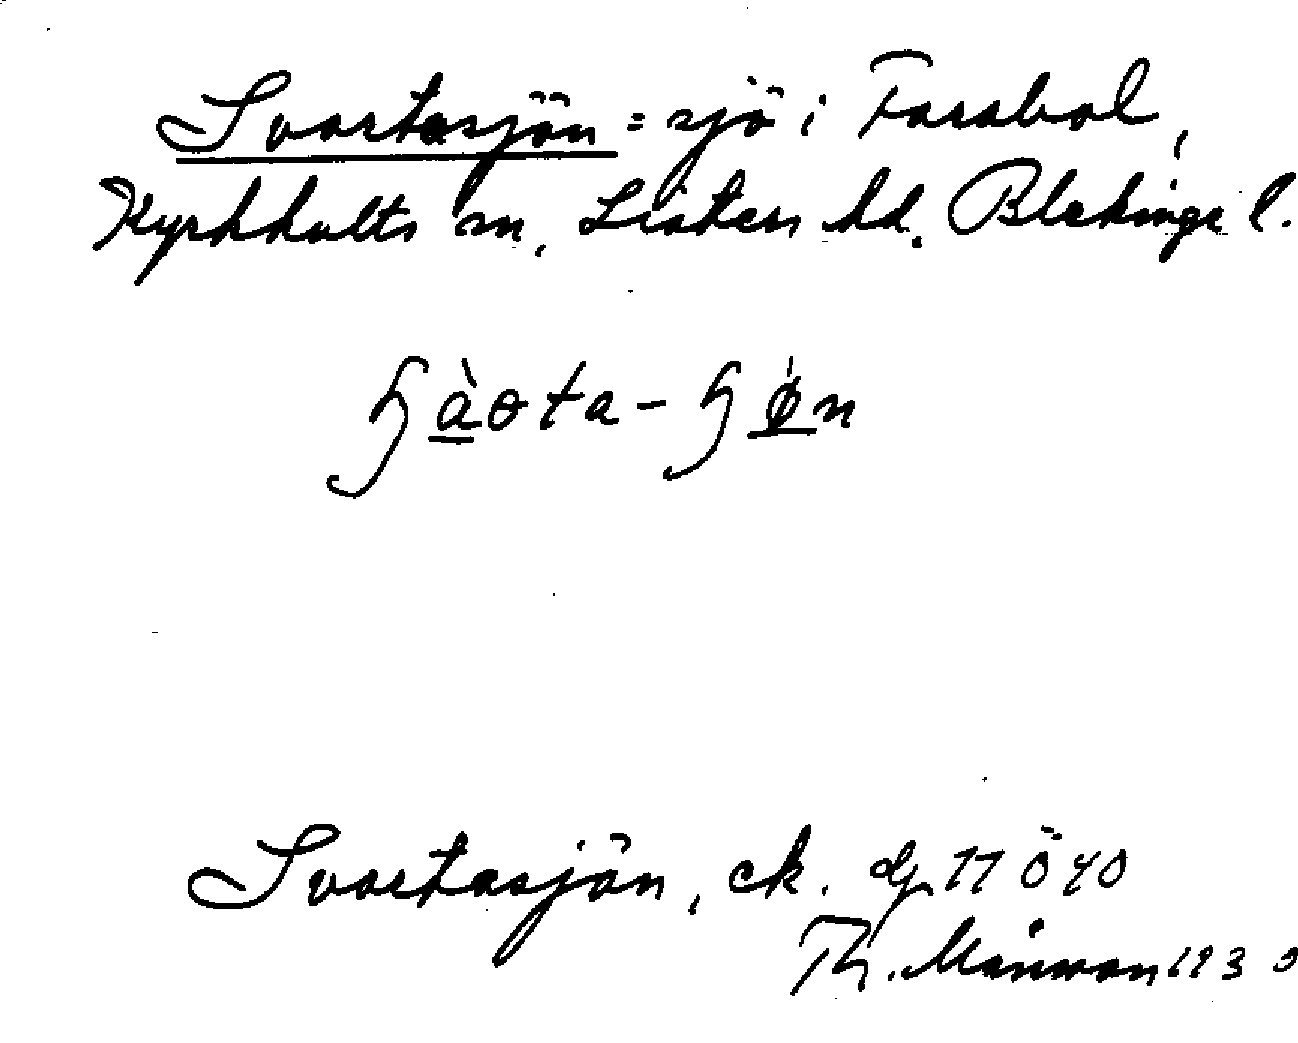 Svartasjön = sjö i Farabol,
Kyrkhults sn, Listers hd. Blekinge l.
Svartasjön, ek. 11 Ö 40
Th. Månson 1930